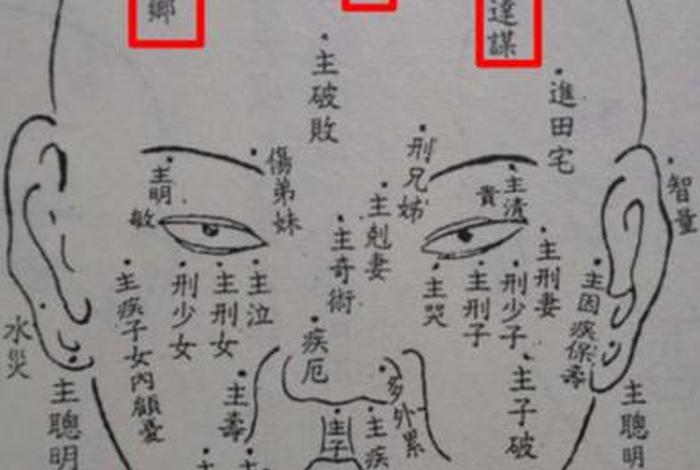 鄉
違謀
主破敗
進田宅
傷弟妹
刑兄姊
主明敏
主清貴
智量
主剋妻
主奇術
主刑妻
主疾子女內顧憂
刑少女
主刑女
主泣
主哭
主刑子
刑少子
主因疾保壽
水災
疾厄
主壽
多外累
主子破
主聰明
主子
主疾
主聰明
主
主